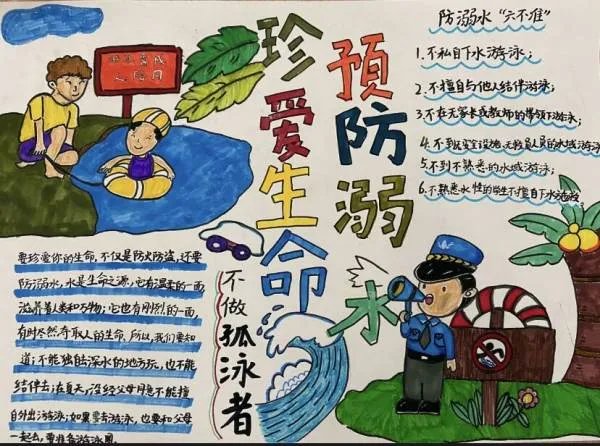 珍爱生命
预防溺水
不做孤泳者
防溺水“六不准”
1.不私自下水游泳;
2.不擅自与他人结伴游泳;
3.不在无家长或教师的带领下游泳;
4.不到无安全设施、无救援人员的水域游泳
5.不到不熟悉的水域游泳;
6.不熟悉水性的学生不擅自下水施救
要珍爱你的生命,不仅是防火防盗,还要
防溺水,水是生命之源,它有温柔的一面
滋养着人类和万物;它也有刚烈的一面,
有时尽然夺取人的生命,所以,我们要知
道:不能独自去深水的地方玩,也不能
结伴去;在夏天,没经父母同意不能擅
自外出游泳;如果要去游泳,也要和父母
一起去,要准备游泳圈。